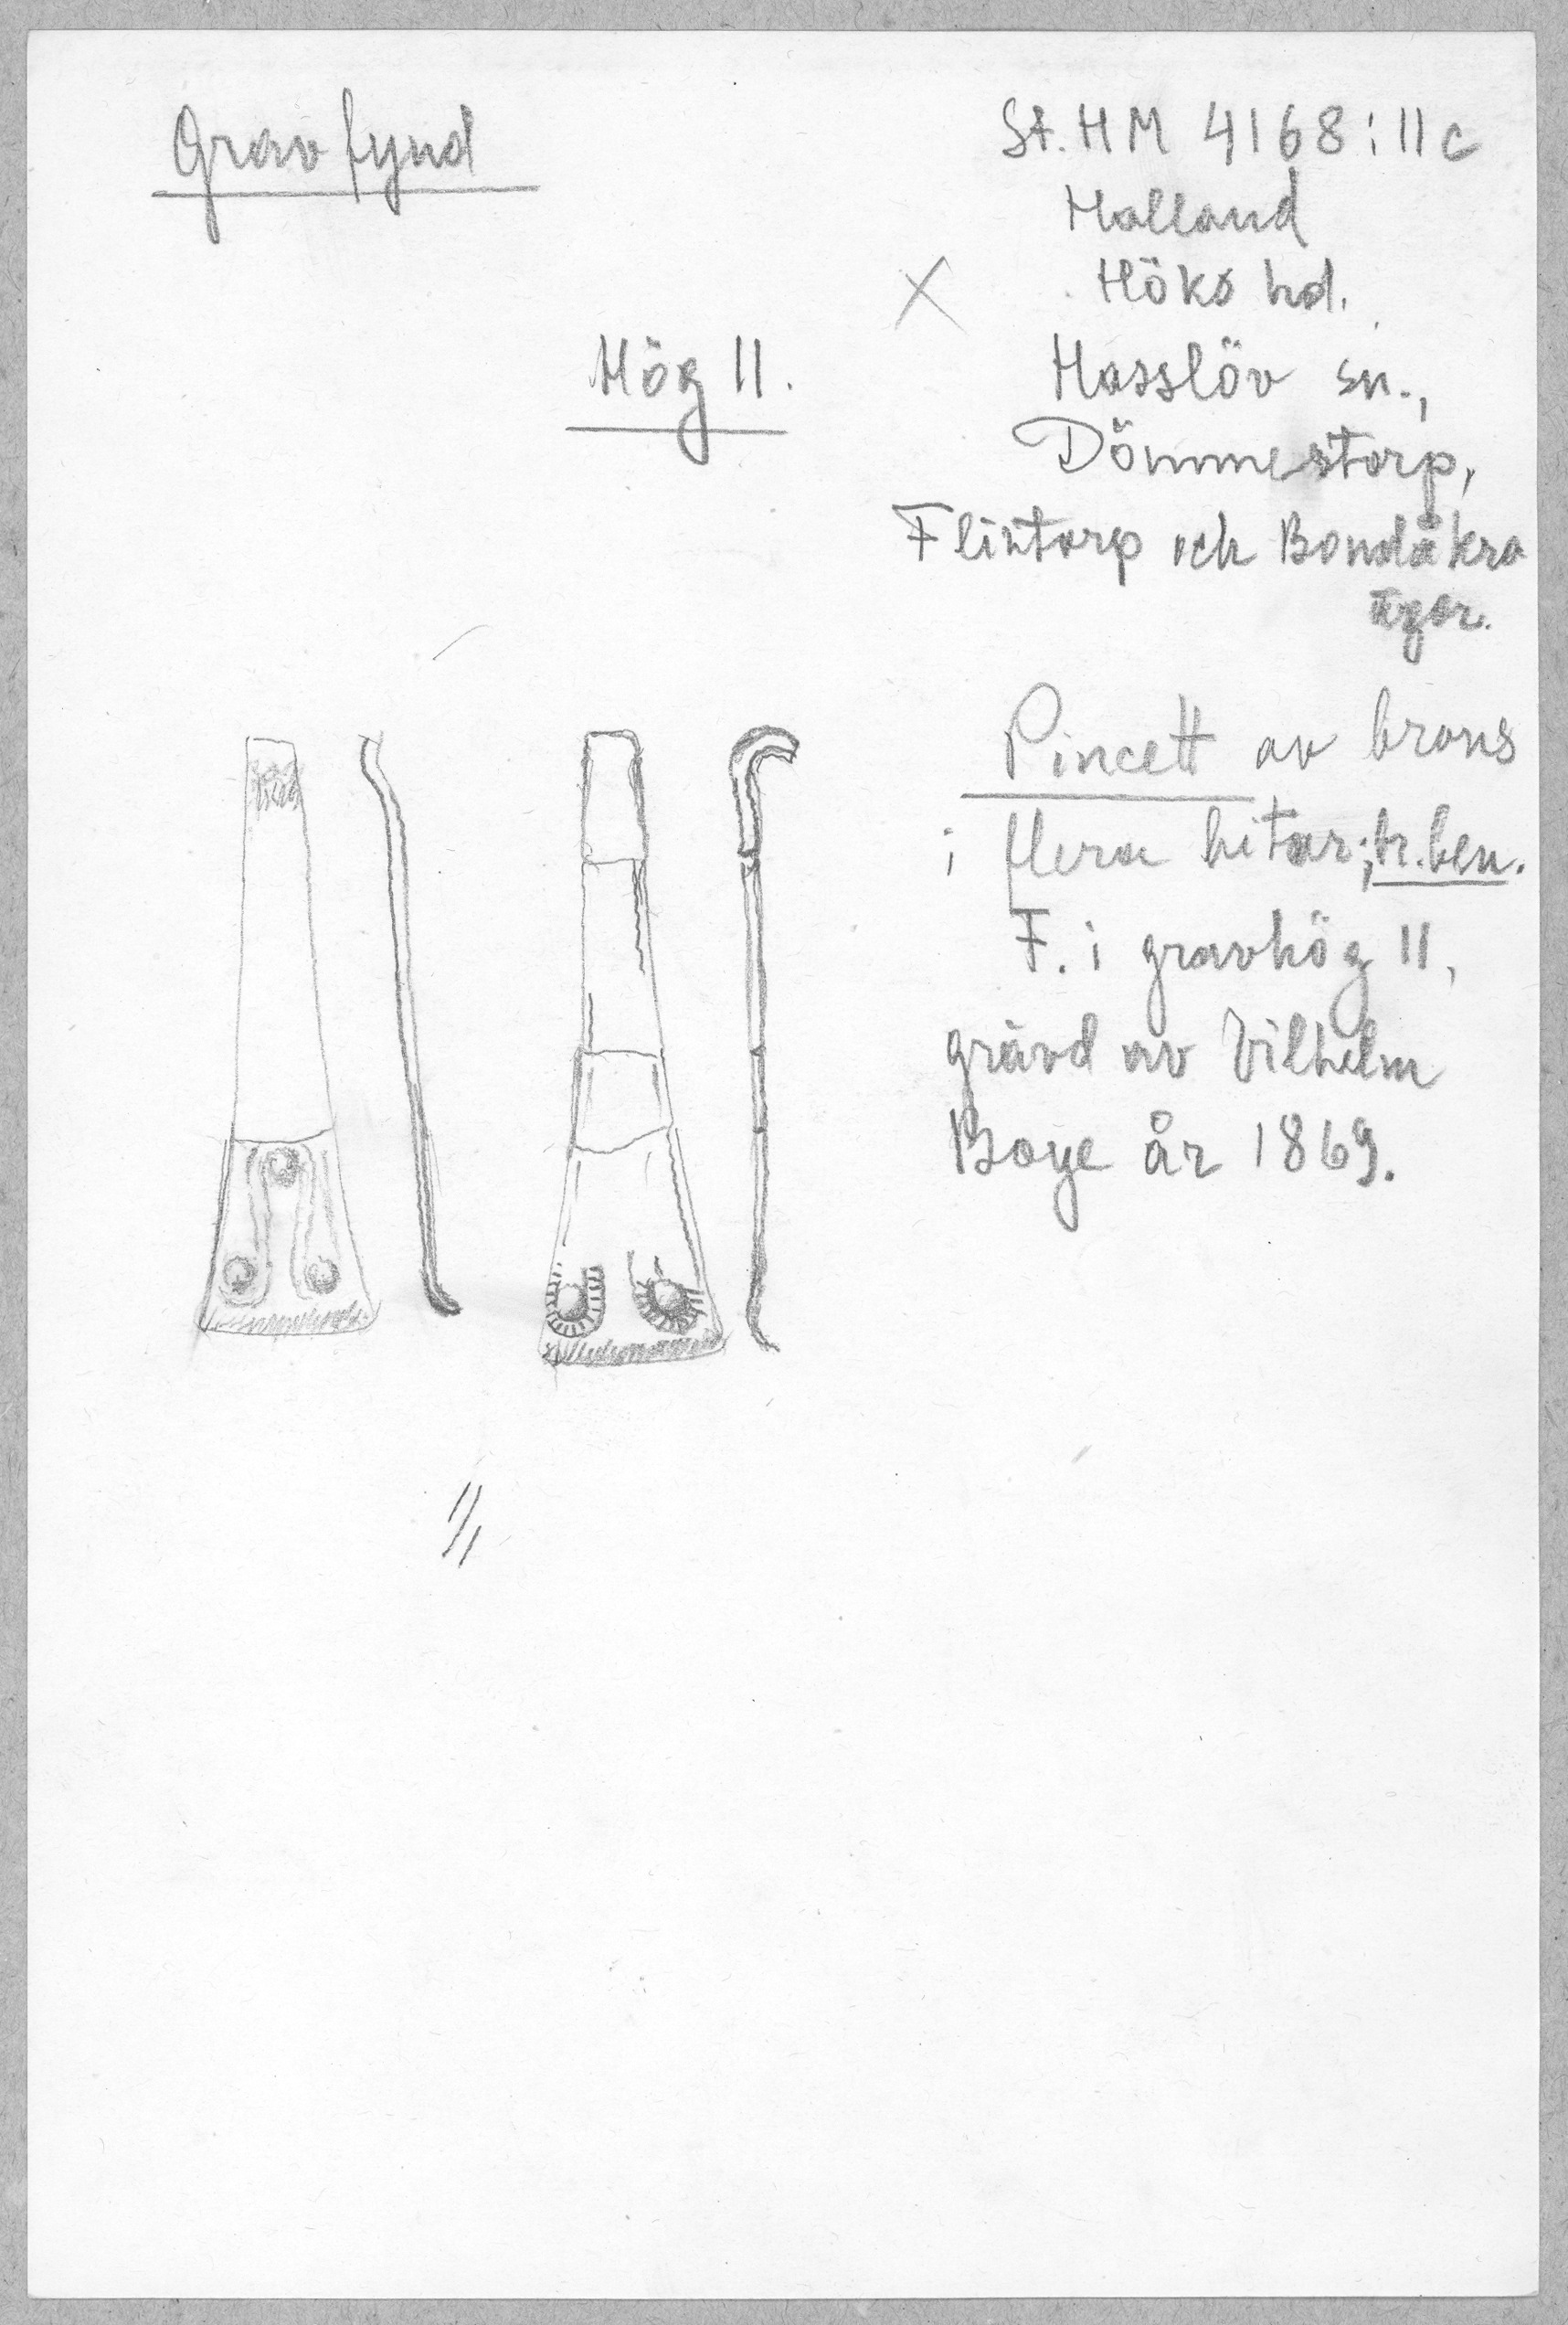 Gravfynd
St. HM 4168:11c
Halland
Höks hd.
Hög 11.
Hasslöv sn.,
Dömmestorp,
Flintarp och Bondåkra
ägor.
Pincett av brons
i flera bitar; br. ben.
F. i gravhög 11,
grävd av Vilhelm
Boye år 1869.
1/1